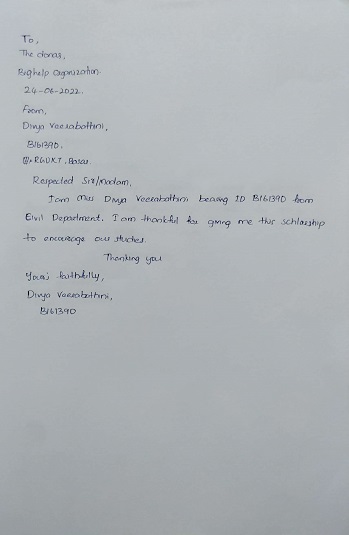 To,
The donas,
Bighelp Organization.
24-06-2022.
From,
Divya Veerabothini,
B161390.
RGUKT, Basar.
Respected Sir/Madam,
I am Miss Divya Veerabothini bearing ID B161390 from
Civil Department. I am thankful for giving me this schlarship
to encourage our studies.
Thanking you
Yours faithfully,
Divya Veerabothini,
B161390